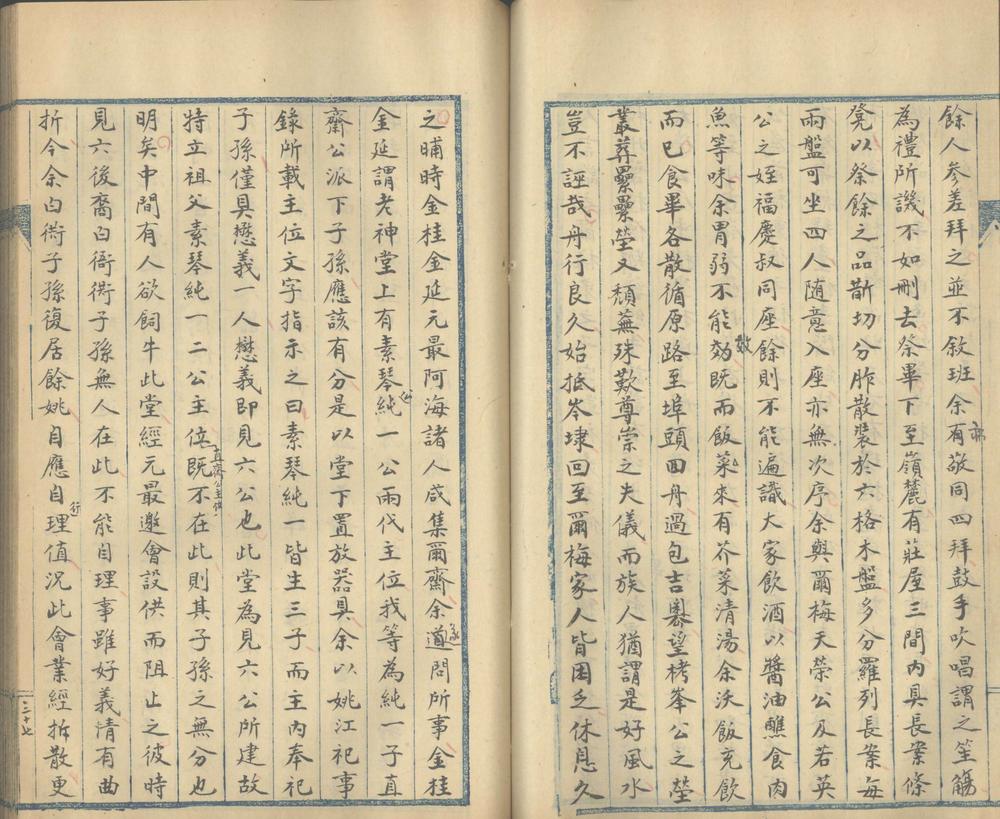 餘人參差拜之並不敘班余有敬同四拜鼓手吹唱謂之笙觴
為禮所譏不如刪去祭畢下至嶺麓有莊屋三間內具長案條
凳以祭餘之品斷切分胙散裝於六格木盤多分羅列長案每
兩盤可坐四人隨意入座亦無次序余與爾梅天榮公及若英
公之姪福慶叔同座餘則不能遍識大家飲酒以醬油醮食肉
魚等味余胃弱不能效既而飯菜來有芥菜清湯余沃飯充飲
而已食畢各散循原路至埠頭回舟過包吉嶴望栲峯公之塋
叢葬纍纍塋又頹蕪殊歎尊崇之失儀而族人猶謂是好風水
豈不誣哉舟行良久始抵岑埭回至爾梅家人皆困乏休息久
之晡時金桂金延元最阿海諸人咸集爾齋余遂問所事金桂
金延謂老神堂上有素琴公純一公兩代主位我等為純一子直
齋公派下子孫應該有分是以堂下置放器具余以姚江祀事
錄所載主位文字指示之曰素琴純一皆生三子而主內奉祀
子孫僅具懋義一人懋義即見六公也此堂為見六公所建故
特立祖父素琴純一二公主位直齋公主位既不在此則其子孫之無分也
明矣中間有人欲飼牛此堂經元最邀會設供而阻止之彼時
見六後裔白衙衖子孫無人在此不能自理事雖好義情有曲
折今余白衙子孫復居餘姚自應自行理值況此會業經拆散更
二十七